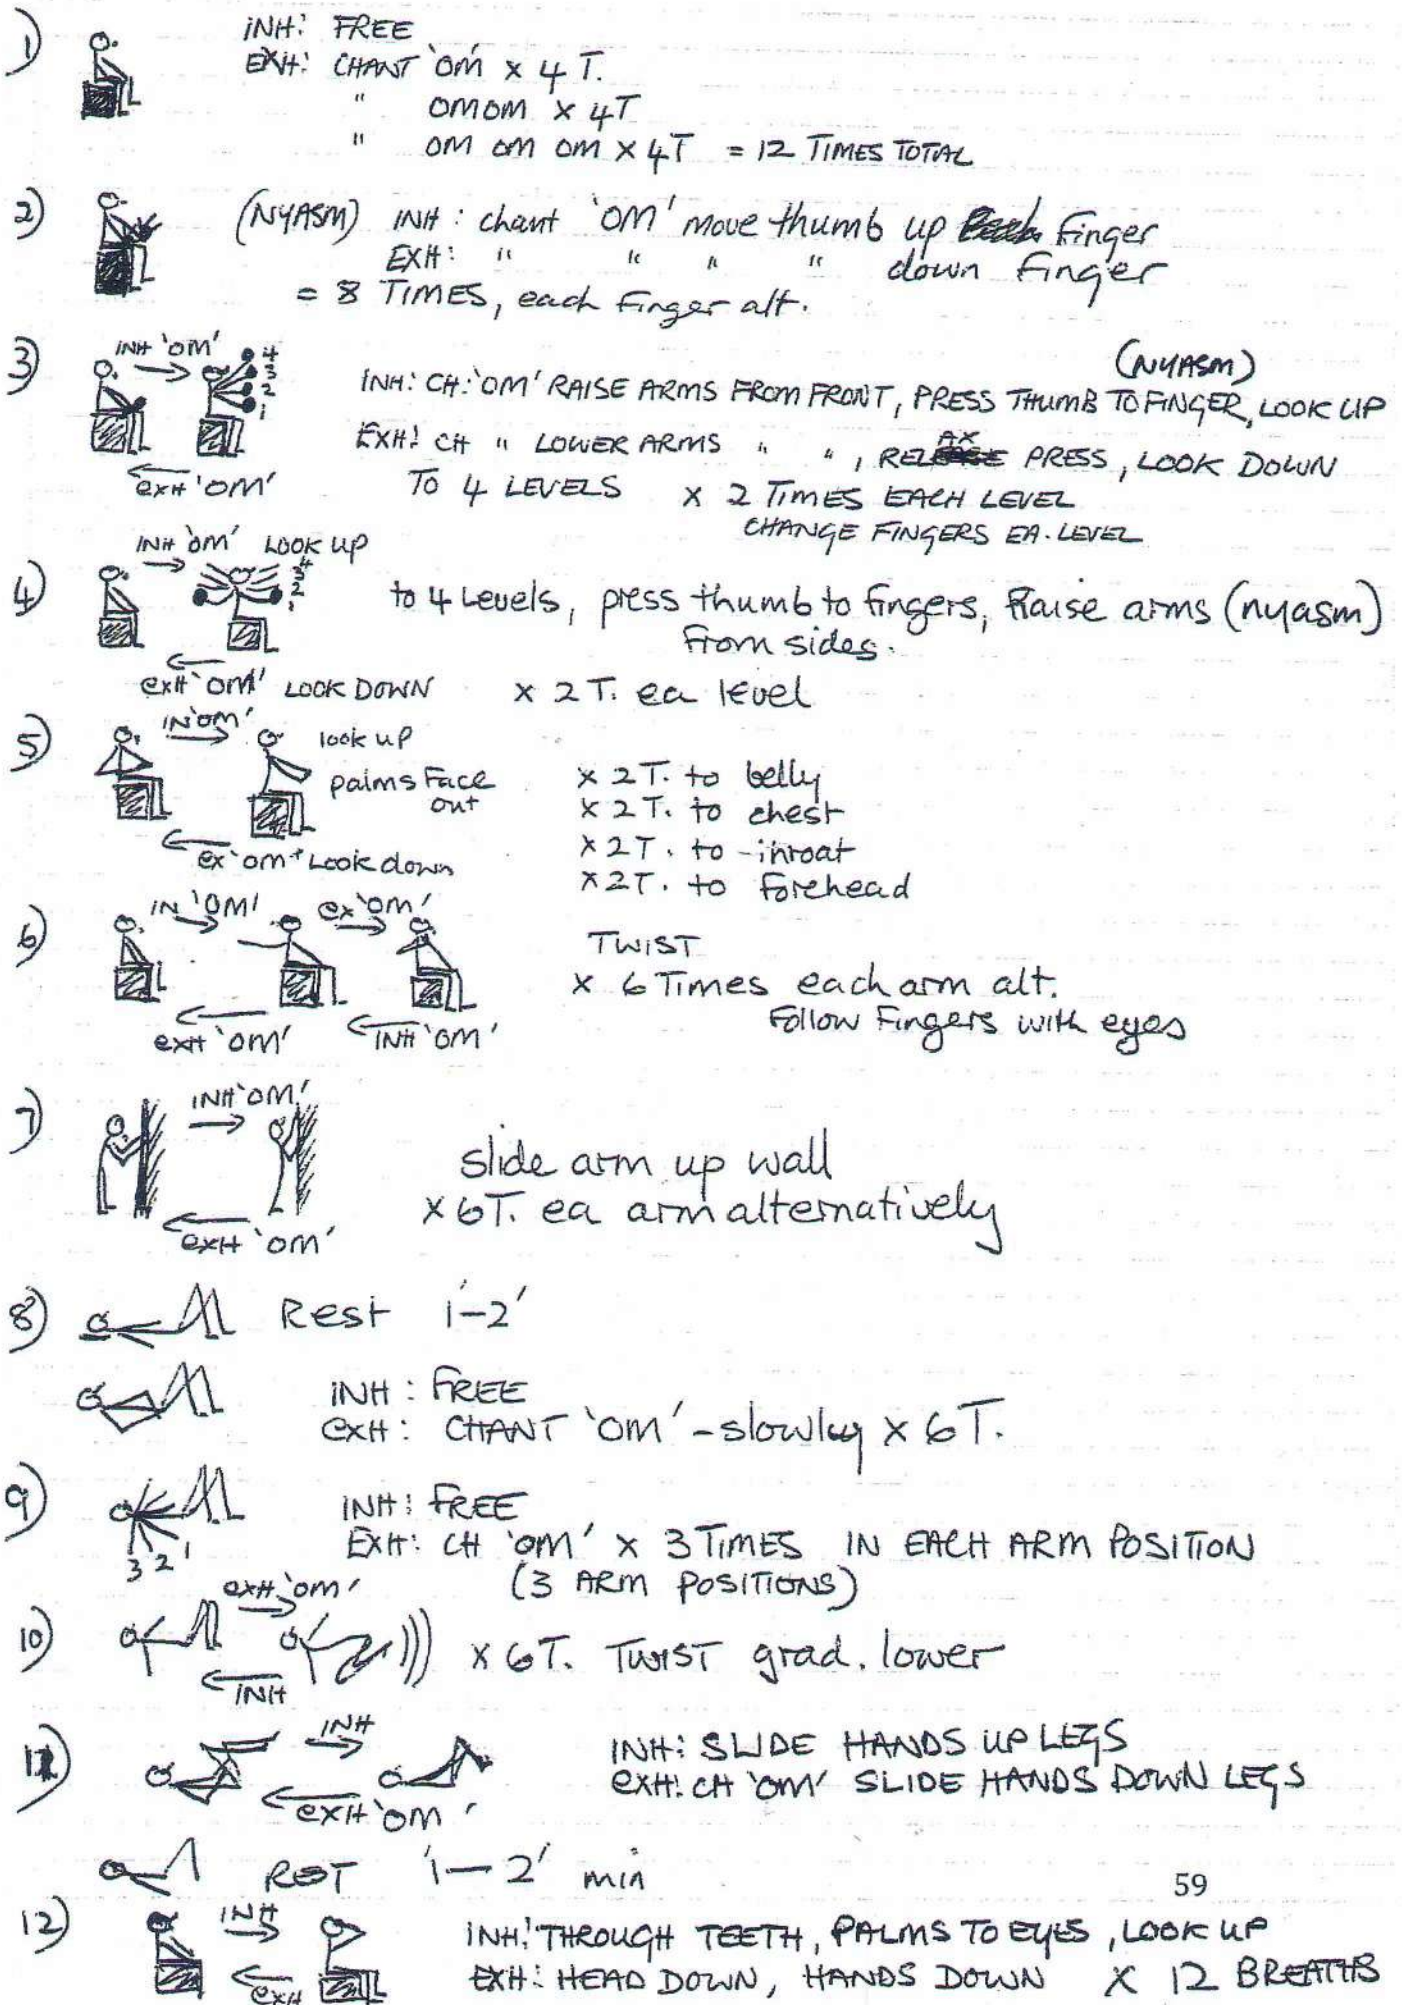 1) INH: FREE
EXH: CHANT 'OM' x 4 T.
" OMOM x 4T
" OM OM OM x 4T = 12 TIMES TOTAL
2) (NYASM) INH: chant 'OM' move thumb up finger
EXH: " " " " down finger
= 8 TIMES, each finger alt.
3) INH 'OM' 4 3 2 1
(NYASM)
INH: CH: 'OM' RAISE ARMS FROM FRONT, PRESS THUMB TO FINGER, LOOK UP
EXH: CH " LOWER ARMS " ", RELAX PRESS, LOOK DOWN
EXH 'OM' TO 4 LEVELS x 2 TIMES EACH LEVEL
CHANGE FINGERS EA. LEVEL
INH 'OM' LOOK UP
4) 4 3 2 1 to 4 Levels, press thumb to fingers, Raise arms (nyasm)
from sides.
EXH 'OM' LOOK DOWN x 2 T. ea level
5) IN 'OM' look up
palms Face out
x 2T. to belly
x 2T. to chest
x 2T. to throat
x 2T. to Forehead
ex 'om' Look down
6) IN 'OM' ex 'OM' TWIST
x 6 Times each arm alt.
Follow Fingers with eyes
exH 'OM' INH 'OM'
7) INH 'OM'
slide arm up wall
x 6T. ea arm alternatively
exH 'OM'
8) Rest 1-2'
INH: FREE
exH: CHANT 'OM' - slowley x 6T.
9) INH: FREE
EXH: CH 'OM' x 3 TIMES IN EACH ARM POSITION
3 2 1 (3 ARM POSITIONS)
exH 'OM'
10) x 6T. TWIST grad. lower
INH
11) INH INH: SLIDE HANDS UP LEGS
exH: CH 'OM' SLIDE HANDS DOWN LEGS
exH 'OM'
REST '1-2' min
59
12) INH INH: THROUGH TEETH, PALMS TO EYES, LOOK UP
EXH EXH: HEAD DOWN, HANDS DOWN X 12 BREATHS